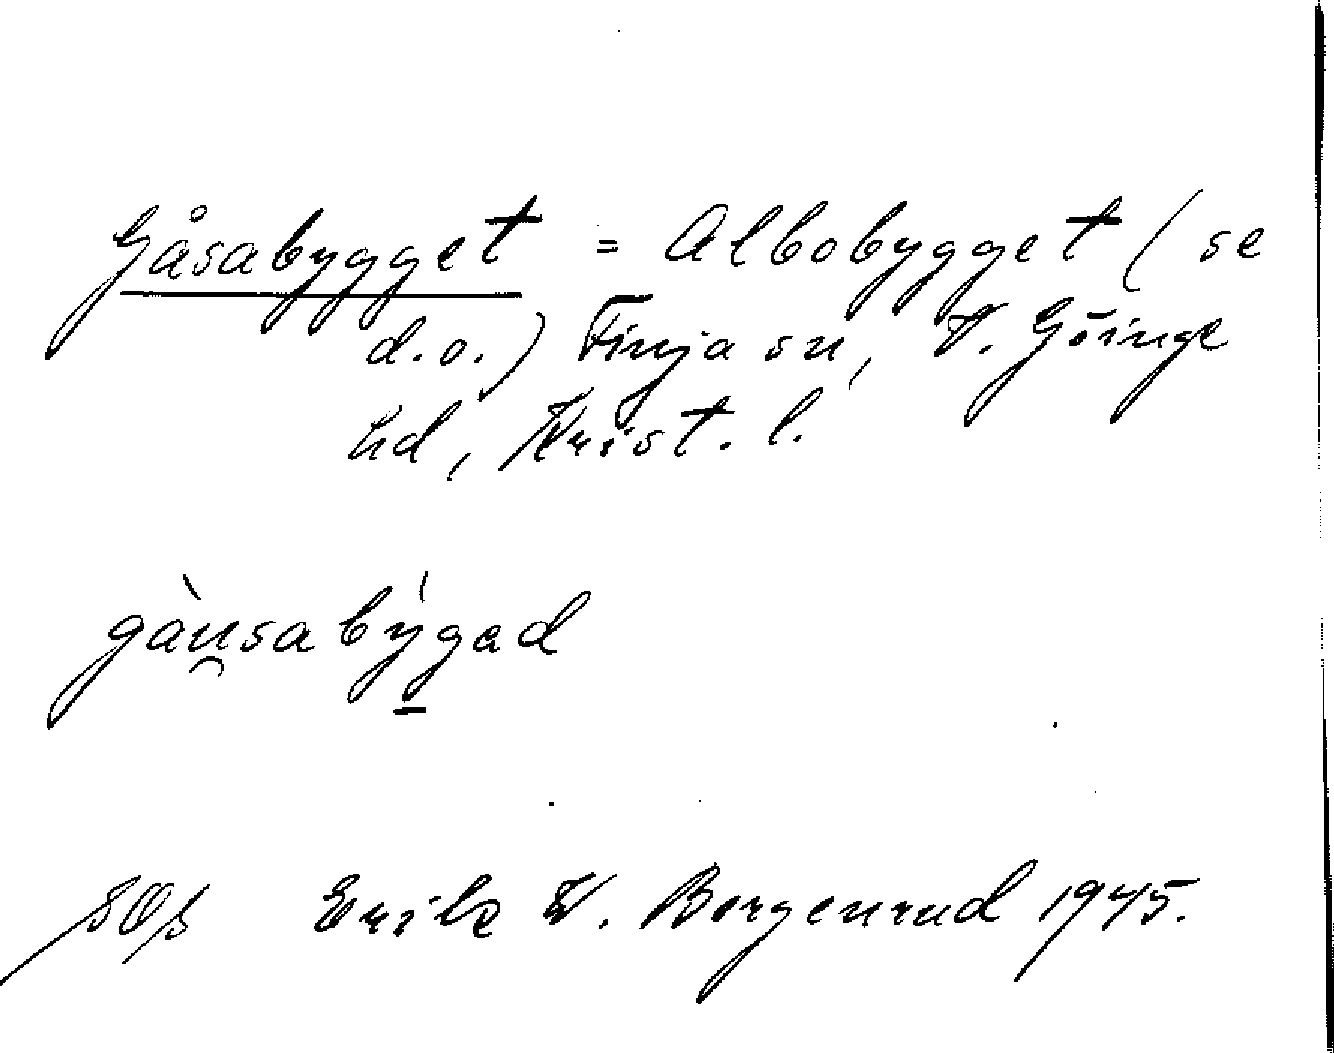 Gåsabygget = Albobygget (se
d.o.) Finja sn, V. Göinge
hd, Krist. l.
gàu̯sabý̱gad
Erik W. Borgenrud 1945.